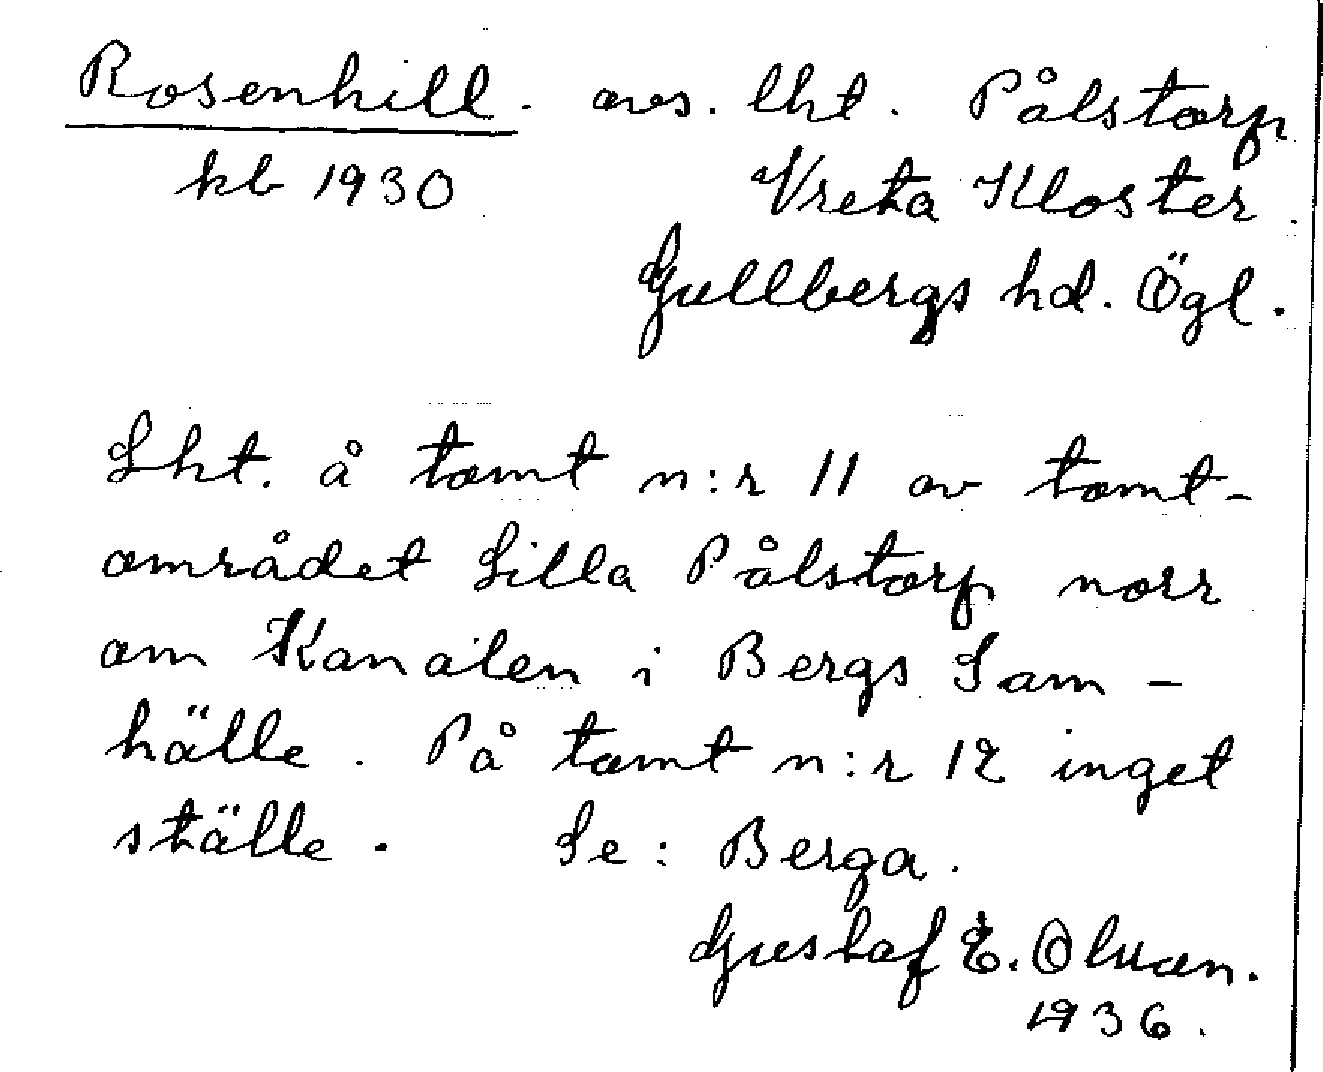 Rosenhill. avs. lht. Pålstorp
kb 1930 Vreta Kloster.
Gullbergs hd. Ögl.
Lht. å tomt n:r 11 av tomt-
området Lilla Pålstorp norr
om Kanalen i Bergs Sam-
hälle. På tomt n:r 12 inget
ställe. Se: Berga.
Gustaf E.
1936.